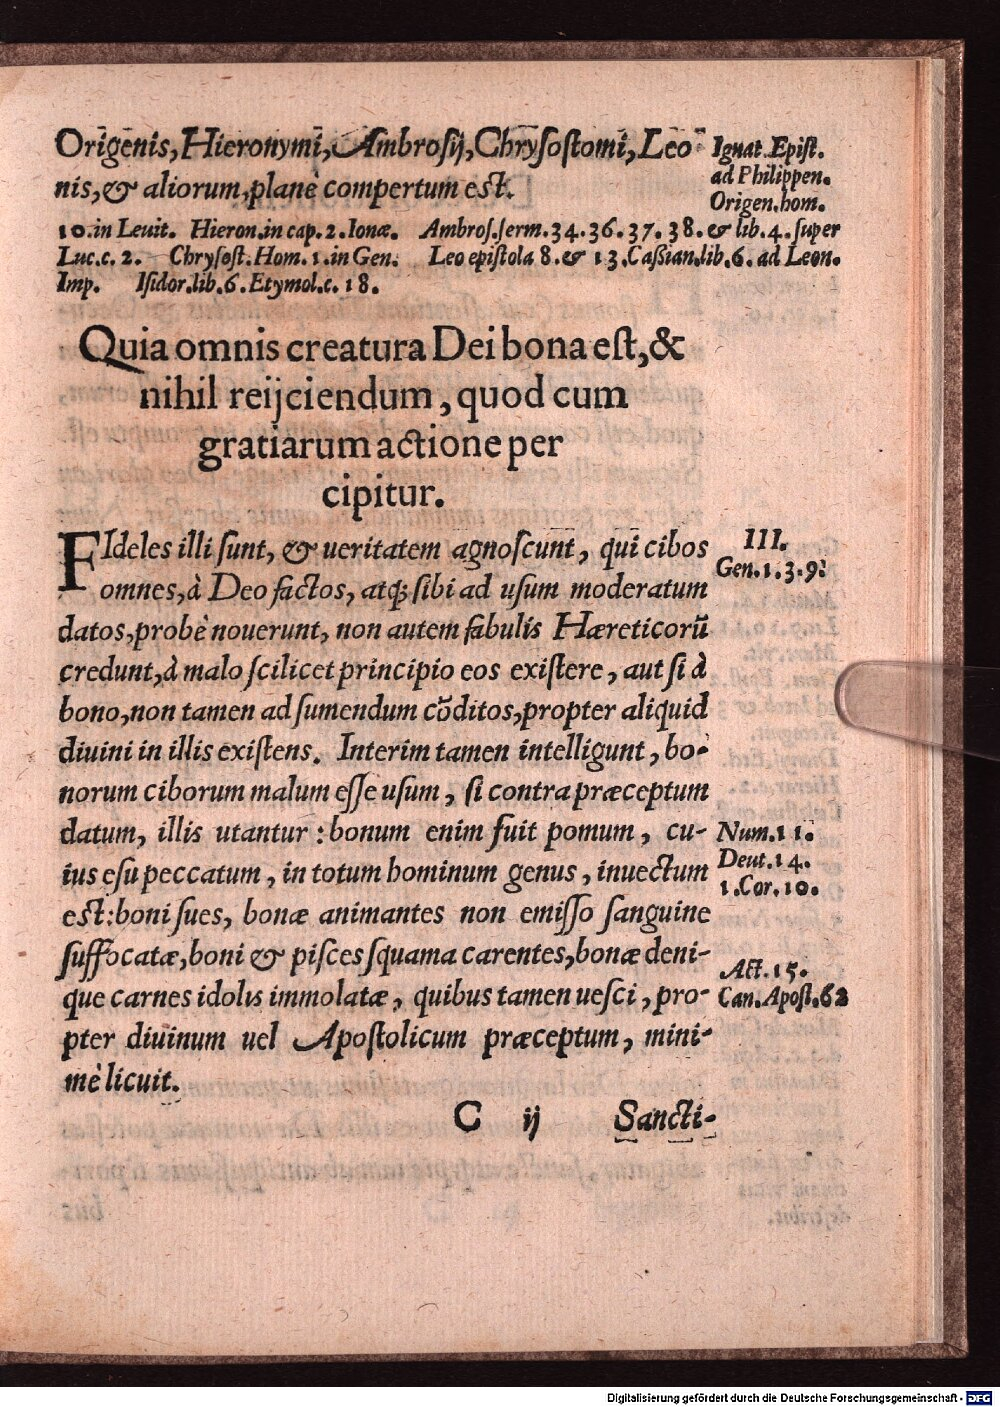 Origenis, Hieronymi, Ambrosij, Chrysostomi, Leo
nis, & aliorum, planè compertum est.
Ignat. Epist.
ad Philippen.
Origen. hom.
10. in Leuit. Hieron. in cap. 2. Ionæ. Ambros. serm. 34. 36. 37. 38. & lib. 4. super
Luc. c. 2. Chrysost. Hom. 1. in Gen. Leo epistola 8. & 13. Cassian. lib. 6. ad Leon.
Imp. Isidor. lib. 6. Etymol. c. 18.
Quia omnis creatura Dei bona est, &
nihil reijciendum, quod cum
gratiarum actione per
cipitur.
FIdeles illi sunt, & ueritatem agnoscunt, qui cibos
omnes, à Deo factos, atq; sibi ad usum moderatum
datos, probè nouerunt, non autem fabulis Hæreticorũ
credunt, à malo scilicet principio eos existere, aut si à
bono, non tamen ad sumendum cõditos, propter aliquid
diuini in illis existens. Interim tamen intelligunt, bo-
norum ciborum malum esse usum, si contra præceptum
datum, illis utantur: bonum enim fuit pomum, cu-
ius esu peccatum, in totum hominum genus, inuectum
est: boni sues, bonæ animantes non emisso sanguine
suffocatæ, boni & pisces squama carentes, bonæ deni-
que carnes idolis immolatæ, quibus tamen uesci, pro-
pter diuinum uel Apostolicum præceptum, mini-
mè licuit.
III.
Gen. 1. 3. 9.
Num. 11.
Deut. 14.
1. Cor. 10.
Act. 15.
Can. Apost. 62
C ij Sancti-
Digitalisierung gefördert durch die Deutsche Forschungsgemeinschaft - DFG